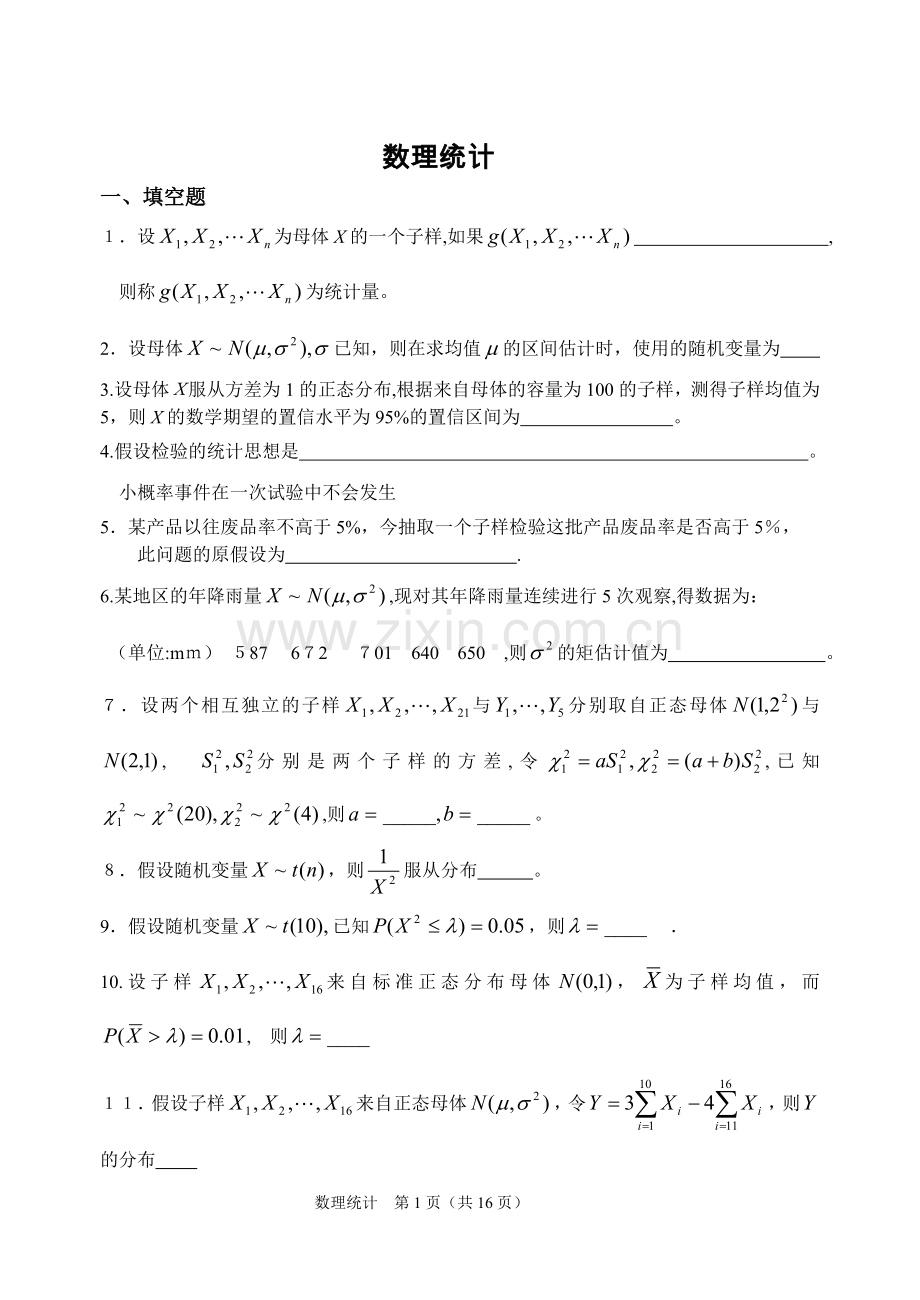 数理统计
一、填空题
１．设 X₁, X₂, ⋯ Xₙ 为母体 X 的一个子样,如果 g(X₁, X₂, ⋯ Xₙ) ____________________ ,
则称 g(X₁, X₂, ⋯ Xₙ) 为统计量。
2．设母体 X ~ N(μ, σ²), σ 已知，则在求均值 μ 的区间估计时，使用的随机变量为____
3.设母体 X 服从方差为 1 的正态分布,根据来自母体的容量为 100 的子样，测得子样均值为
5，则 X 的数学期望的置信水平为 95%的置信区间为________________ 。
4.假设检验的统计思想是____________________________________________________ 。
小概率事件在一次试验中不会发生
5．某产品以往废品率不高于 5%，今抽取一个子样检验这批产品废品率是否高于 5％，
此问题的原假设为________________________ .
6.某地区的年降雨量 X ~ N(μ, σ²) ,现对其年降雨量连续进行 5 次观察,得数据为：
（单位:mｍ） ５87 6７2 ７01 640 650 ,则 σ² 的矩估计值为________________ 。
７．设两个相互独立的子样 X₁, X₂, ⋯, X₂₁ 与 Y₁, ⋯, Y₅ 分别取自正态母体 N(1,2²) 与
N(2,1), S₁², S₂² 分别是两个子样的方差, 令 χ₁² = aS₁², χ₂² = (a + b)S₂², 已知
χ₁² ~ χ²(20), χ₂² ~ χ²(4) ,则 a = _____, b = _____ 。
８．假设随机变量 X ~ t(n)，则 1/X² 服从分布______ 。
9．假设随机变量 X ~ t(10), 已知 P(X² ≤ λ) = 0.05，则 λ = ____ ．
10. 设子样 X₁, X₂, ⋯, X₁₆ 来自标准正态分布母体 N(0,1)， X̄ 为子样均值，而
P(X̄ > λ) = 0.01, 则 λ = ____
１１.假设子样 X₁, X₂, ⋯, X₁₆ 来自正态母体 N(μ, σ²)，令 Y = 3∑_{i=1}^{10} X_i − 4∑_{i=11}^{16} X_i，则 Y
的分布____
数理统计 第 1 页（共 16 页）
www.zixin.com.cn